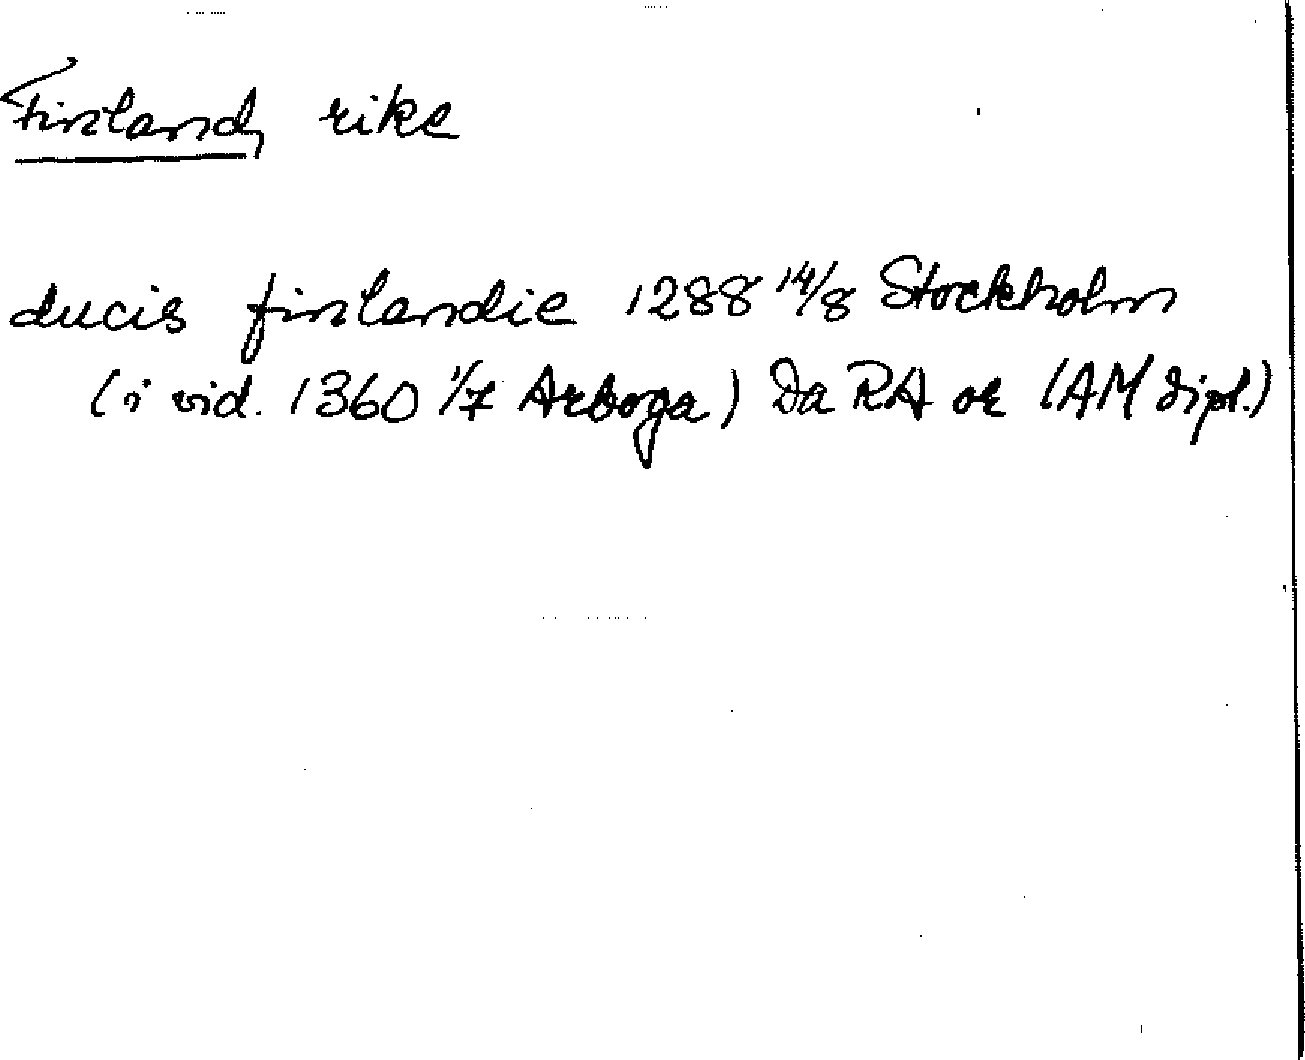 Finland, rike
ducis finlandie 1288 14/8 Stockholm
(i vid. 1360 1/7 Arboga) Da RA or (AM dipl.)